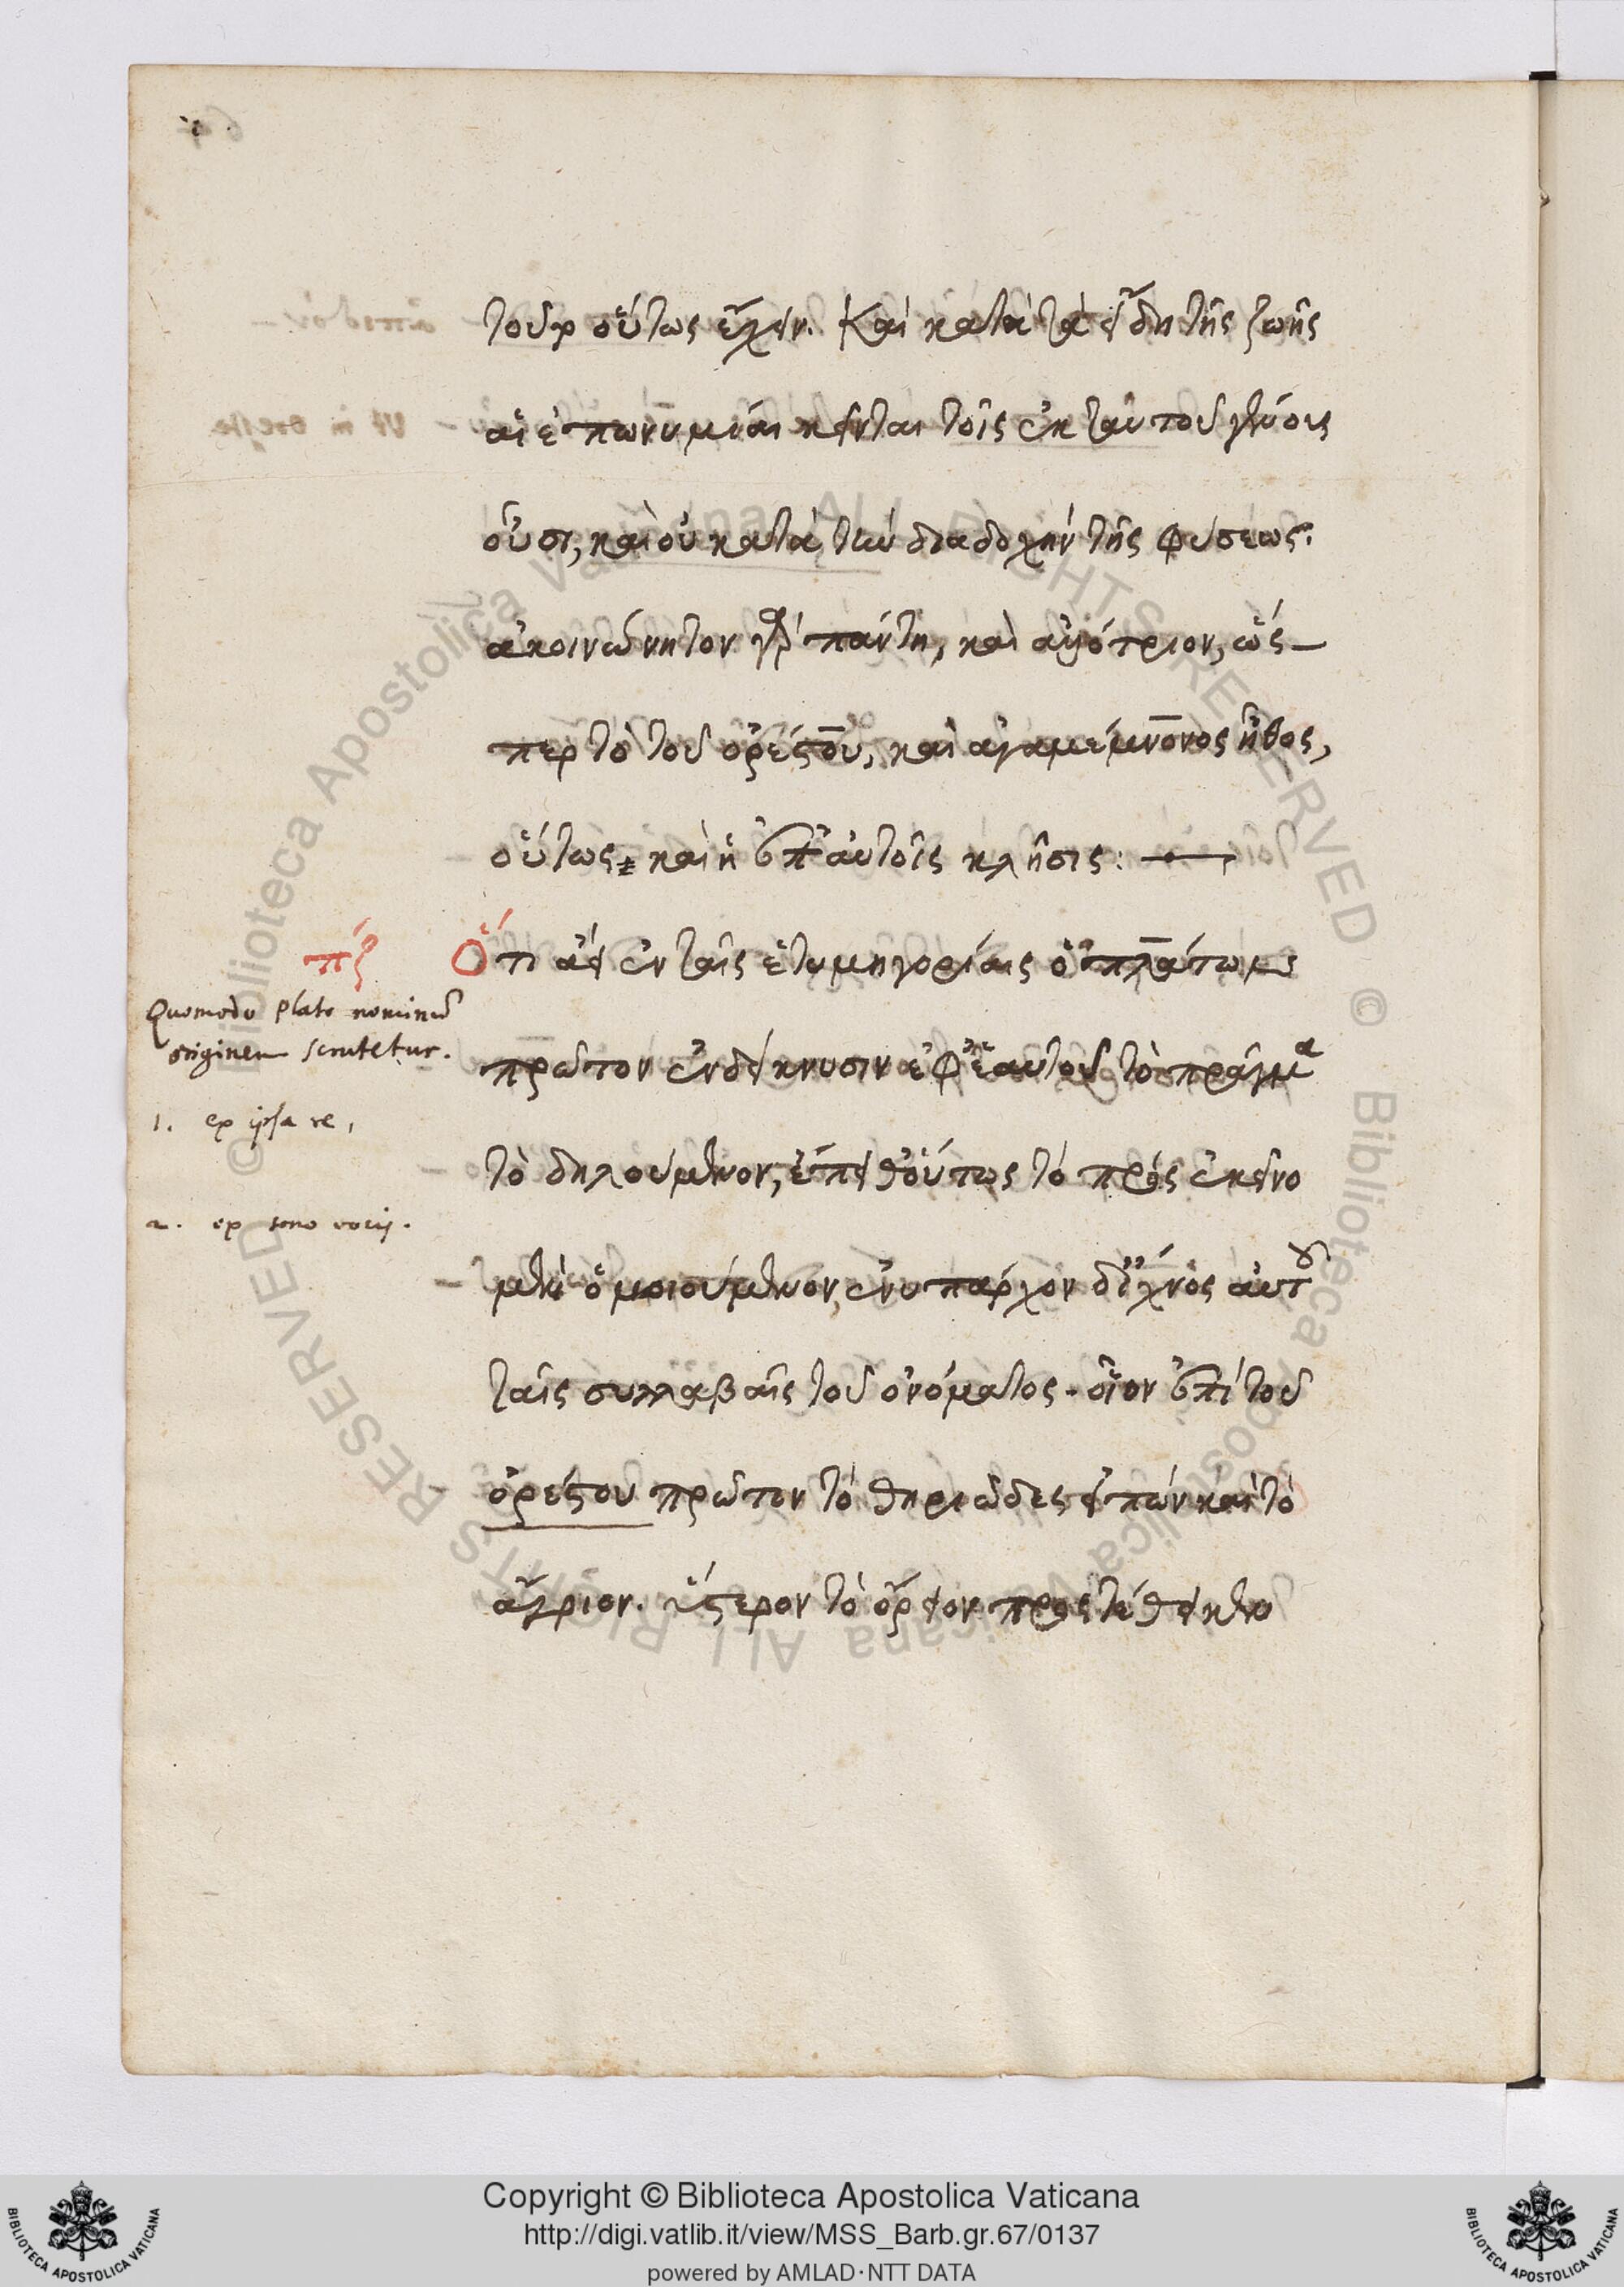 τουρ οὕτως ἔχειν. Καὶ κατὰ τὰ εἴδη τῆς ζωῆς
αἱ ἐπωνυμίαι κεῖνται τοῖς ἐκ ταυτοῦ γένους
οὖσι, καὶ οὐ κατὰ τὴν διαδοχὴν τῆς φύσεως:
ἀκοινώνητον γὰρ πάντη, καὶ ἀλλότριον, ὥς–
περ τὸ τοῦ ὀρέστου, καὶ ἀγαμέμνονος ἦθος,
οὕτως καὶ ἡ ἐπ' αὐτοῖς κλῆσις:
πϛ
Ὅτι ἀεὶ ἐν ταῖς ἐτυμηγορίαις ὁ πλάτων
Quomodo Plato nominum
originem scrutetur.
πρῶτον ἐνδείκνυσιν ἐφ' ἑαυτοῦ τὸ πρᾶγμα
1. ex ipsa re,
τὸ δηλούμενον, ἔπειθ' οὕτως τὸ πρὸς ἐκεῖνο
2. ex sono vocis.
μὲν ὁμοιούμενον, ἐνυπάρχον δ' ἴχνος αὐτοῦ
ταῖς συλλαβαῖς τοῦ ὀνόματος. οἷον ἐπὶ τοῦ
ὀρέστου πρῶτον τὸ θηριῶδες εἰπὼν καὶ τὸ
ἄγριον. ὕστερον τὸ ὄρειον προςτέθεικεν
Copyright © Biblioteca Apostolica Vaticana
http://digi.vatlib.it/view/MSS_Barb.gr.67/0137
powered by AMLAD·NTT DATA
BIBLIOTECA APOSTOLICA VATICANA
BIBLIOTECA APOSTOLICA VATICANA
© Biblioteca Apostolica Vaticana ALL RIGHTS RESERVED
© Biblioteca Apostolica Vaticana ALL RIGHTS RESERVED